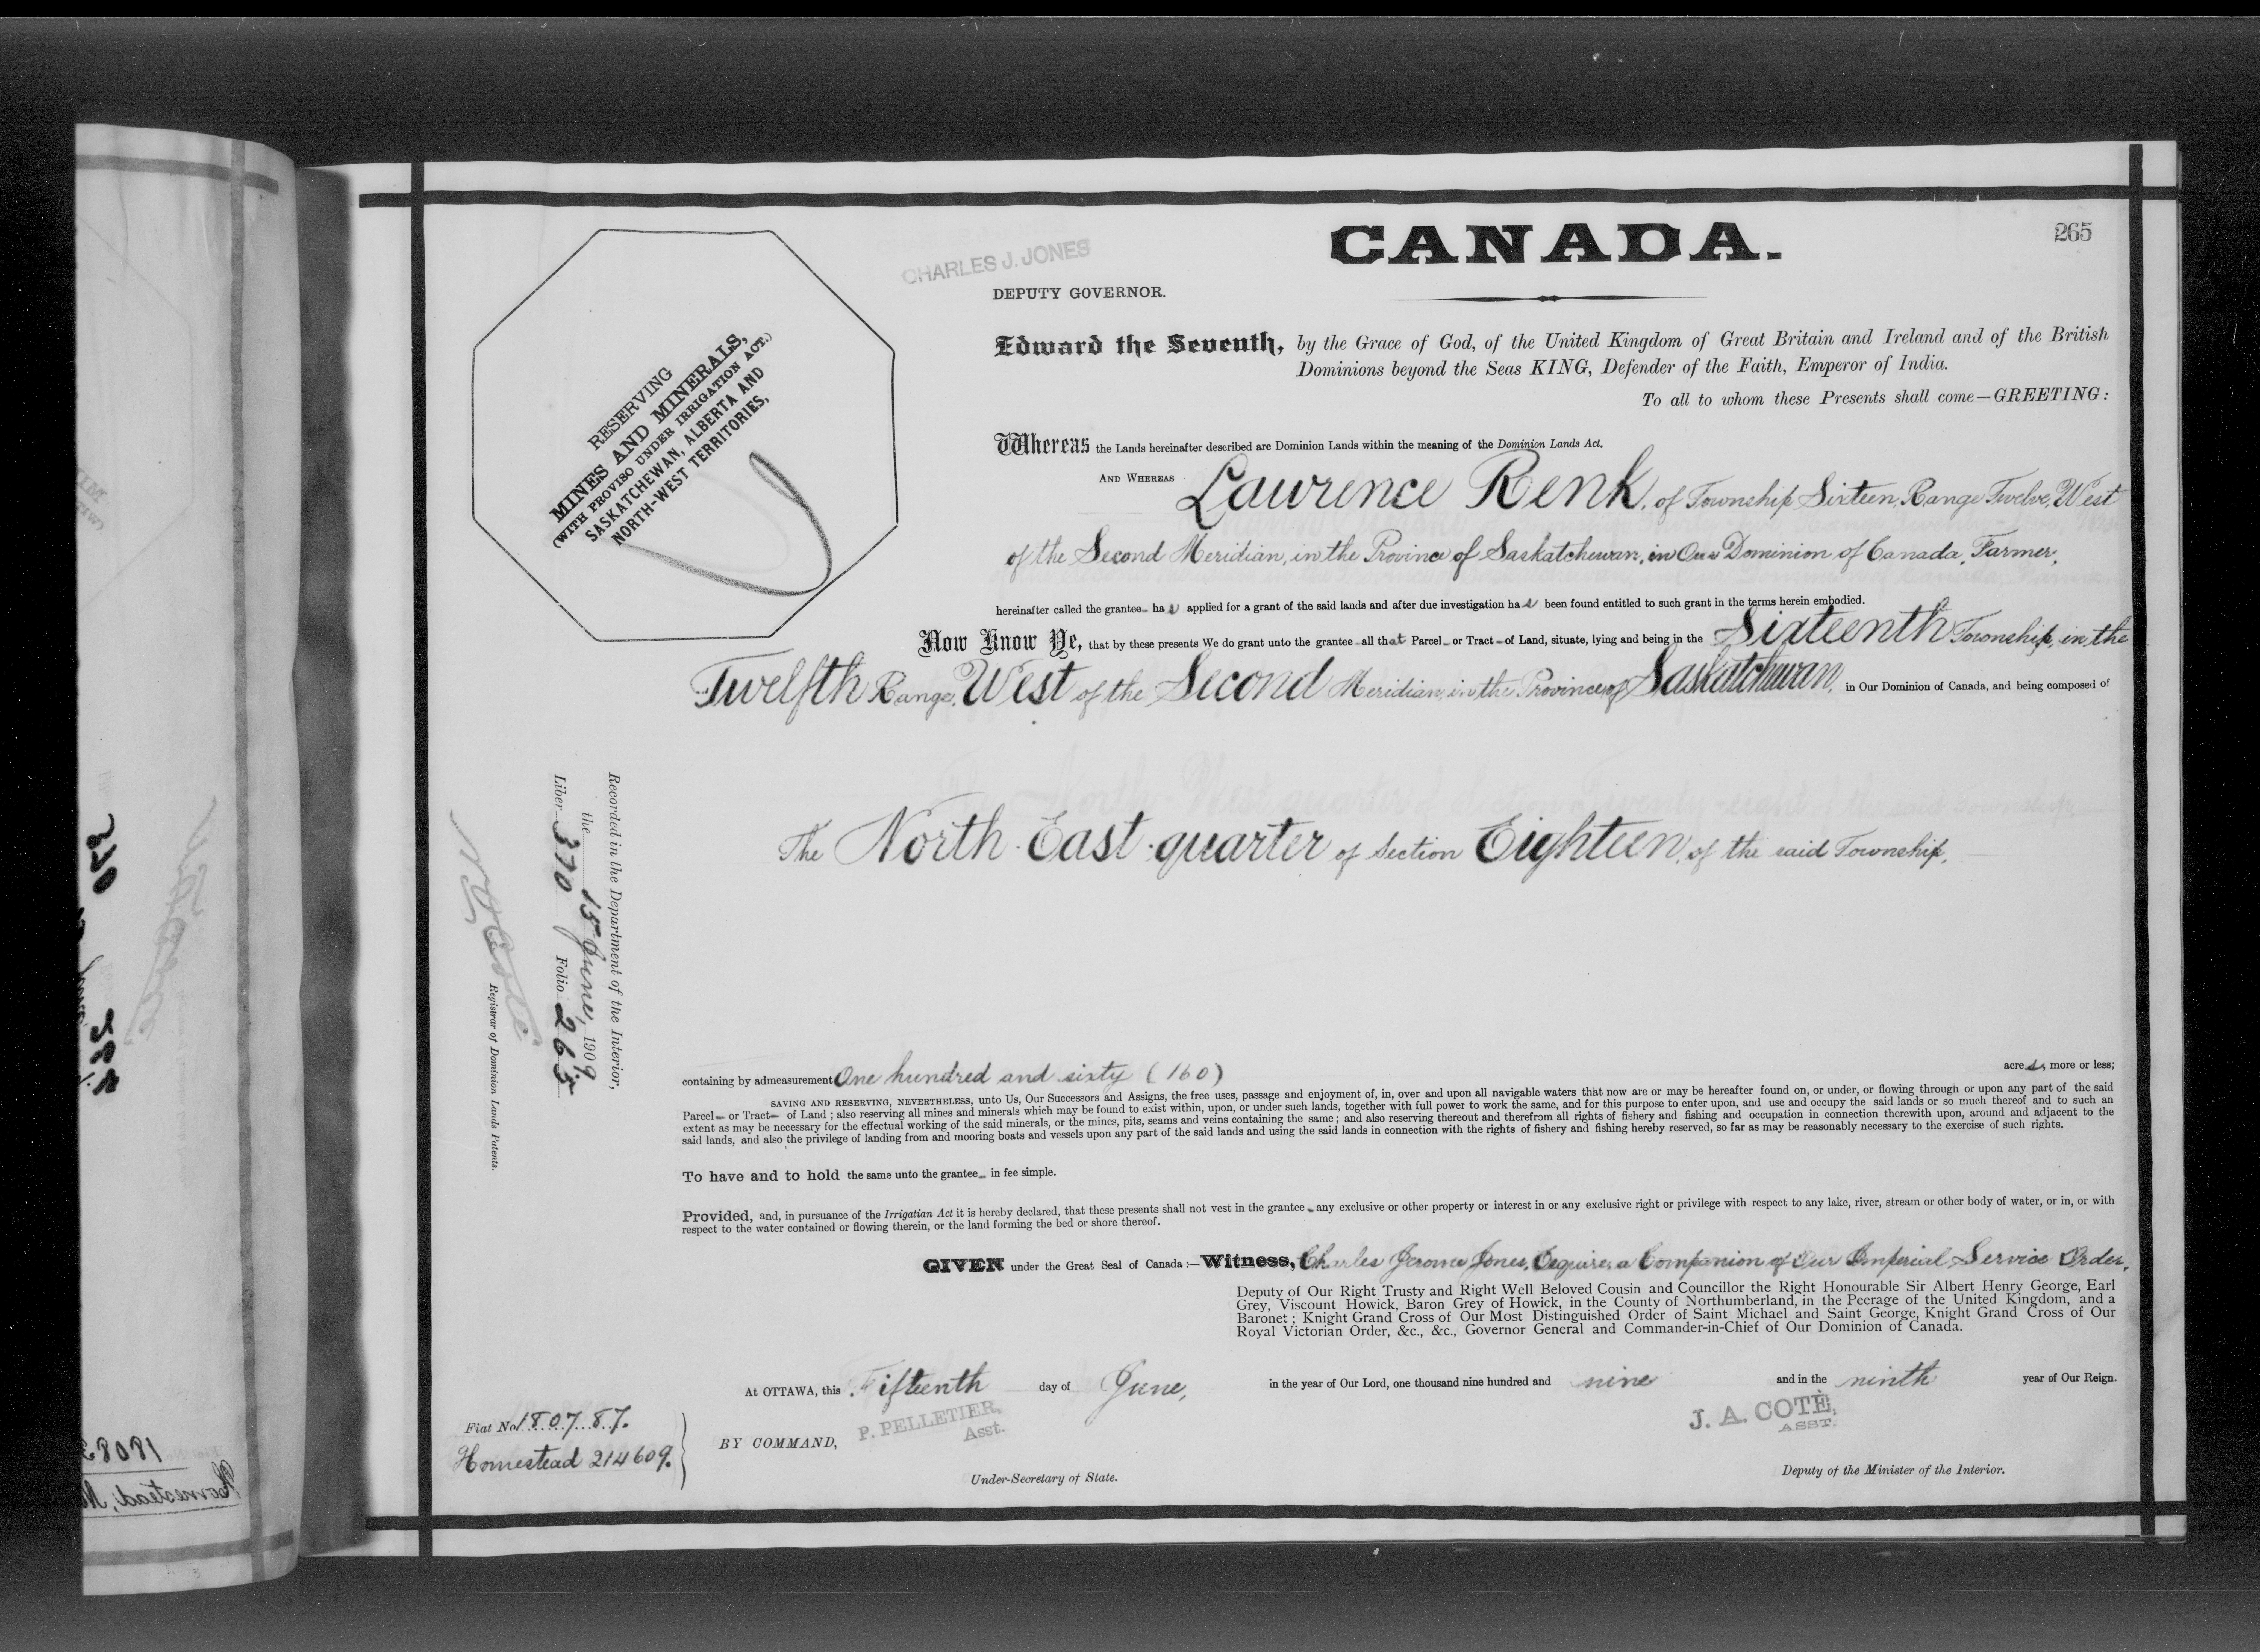 CANADA.
265
CHARLES J. JONES
DEPUTY GOVERNOR.
RESERVING
MINES AND MINERALS,
(WITH PROVISO UNDER IRRIGATION ACT.)
SASKATCHEWAN, ALBERTA AND
NORTH-WEST TERRITORIES,
Edward the Seventh, by the Grace of God, of the United Kingdom of Great Britain and Ireland and of the British
Dominions beyond the Seas KING, Defender of the Faith, Emperor of India.
To all to whom these Presents shall come—GREETING:
Whereas the Lands hereinafter described are Dominion Lands within the meaning of the Dominion Lands Act.
AND WHEREAS Lawrence Renk, of Township Sixteen, Range Twelve, West
of the Second Meridian, in the Province of Saskatchewan, in Our Dominion of Canada, Farmer,
hereinafter called the grantee has applied for a grant of the said lands and after due investigation has been found entitled to such grant in the terms herein embodied.
Now Know Ye, that by these presents We do grant unto the grantee all that Parcel or Tract of Land, situate, lying and being in the Sixteenth Township, in the
Twelfth Range, West of the Second Meridian, in the Province of Saskatchewan, in Our Dominion of Canada, and being composed of
The North-East-quarter of Section Eighteen, of the said Township.
Recorded in the Department of the Interior,
the 15 June, 1909
Liber 370 Folio 265
Registrar of Dominion Lands Patents.
containing by admeasurement One hundred and sixty (160) acres, more or less;
SAVING AND RESERVING, NEVERTHELESS, unto Us, Our Successors and Assigns, the free uses, passage and enjoyment of, in, over and upon all navigable waters that now are or may be hereafter found on, or under, or flowing through or upon any part of the said
Parcel or Tract of Land; also reserving all mines and minerals which may be found to exist within, upon, or under such lands, together with full power to work the same, and for this purpose to enter upon, and use and occupy the said lands or so much thereof and to such an
extent as may be necessary for the effectual working of the said minerals, or the mines, pits, seams and veins containing the same; and also reserving thereout and therefrom all rights of fishery and fishing and occupation in connection therewith upon, around and adjacent to the
said lands, and also the privilege of landing from and mooring boats and vessels upon any part of the said lands and using the said lands in connection with the rights of fishery and fishing hereby reserved, so far as may be reasonably necessary to the exercise of such rights.
To have and to hold the same unto the grantee in fee simple.
Provided, and, in pursuance of the Irrigatian Act it is hereby declared, that these presents shall not vest in the grantee any exclusive or other property or interest in or any exclusive right or privilege with respect to any lake, river, stream or other body of water, or in, or with
respect to the water contained or flowing therein, or the land forming the bed or shore thereof.
GIVEN under the Great Seal of Canada:—Witness, Charles Jerome Jones, Esquire, a Companion of Our Imperial Service Order,
Deputy of Our Right Trusty and Right Well Beloved Cousin and Councillor the Right Honourable Sir Albert Henry George, Earl
Grey, Viscount Howick, Baron Grey of Howick, in the County of Northumberland, in the Peerage of the United Kingdom, and a
Baronet; Knight Grand Cross of Our Most Distinguished Order of Saint Michael and Saint George, Knight Grand Cross of Our
Royal Victorian Order, &c., &c., Governor General and Commander-in-Chief of Our Dominion of Canada.
At OTTAWA, this Fifteenth day of June, in the year of Our Lord, one thousand nine hundred and nine and in the ninth year of Our Reign.
P. PELLETIER,
Asst.
J. A. COTÉ,
ASST.
Fiat No 180787.
Homestead 214609.
BY COMMAND,
Under-Secretary of State.
Deputy of the Minister of the Interior.